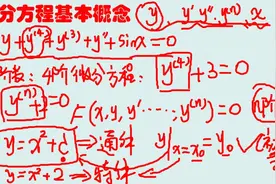 分方程基本概念 y, y' y'' y⁽ⁿ⁾, x
y+y⁽⁴⁾+y⁽³⁾+y''+sinx=0
阶: 4阶微分方程: y⁽⁴⁾+3=0
y⁽ⁿ⁾ =0 F(x,y,y'……,y⁽ⁿ⁾)=0
y=x²+C ⇒通解 y|x=x₀=y₀
y=x²+2 → 特解